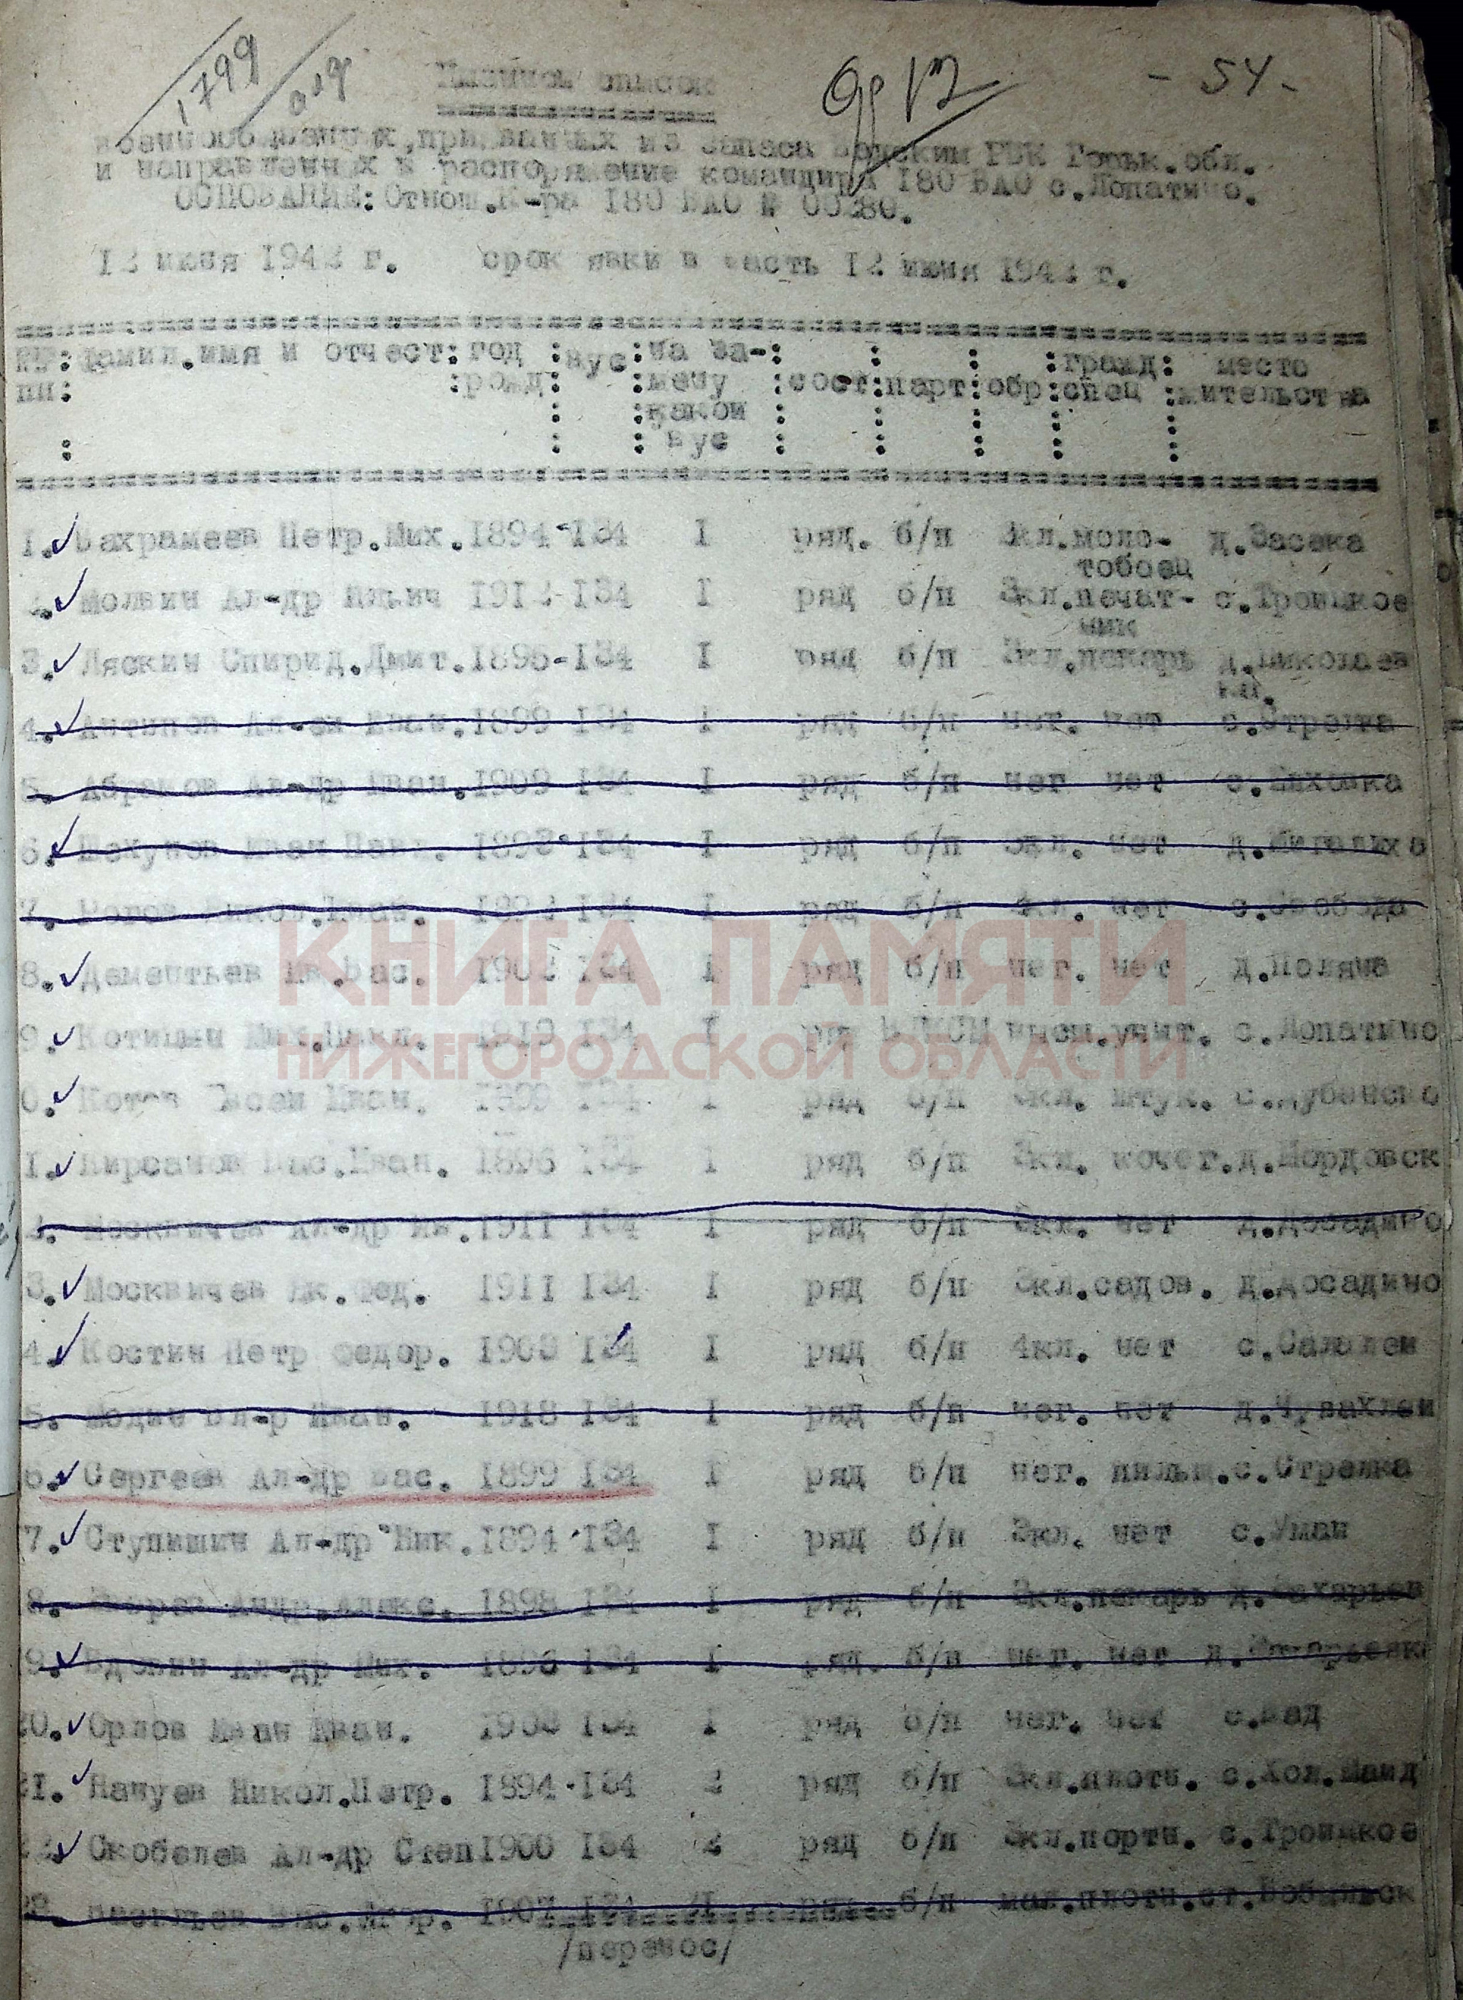 1799
- 54 -
Именной список
военнообязанных, призванных из запаса Вадским РВК Горьк.обл.
и направленных в распоряжение командира 180 ВАО с.Лопатино.
ОСНОВАНИЕ: Отнош.к-ра 180 ВАО № 00280.
12 июня 1942 г. срок явки в часть 12 июня 1942 г.
№№ : фамил.имя и отчест : год : вус : на за- : : : : гражд : место
пп : : рожд : : мену : сост : парт : обр : спец : жительства
какой
вус
1. Вахрамеев Петр.Мих. 1894 134 1 ряд. б/п 3кл.моло- д.Засека
тобоец
2. Молвин Ал-др Ильич 1912 134 1 ряд б/п 3кл.печат- с.Троицкое
ник
3. Ляскин Спирид.Дмит. 1895-134 1 ряд б/п 3кл.пекарь д.Николаев
4. Антипов Ал-ей Иван. 1899 134 1 ряд б/п нег. нет с.Стрелка
5. Абрамов Ал-др Иван. 1909 134 1 ряд б/п нег нет с.
6. Иван Павл. 1898 134 1 ряд б/п 3кл. нет д.
7. Иван. 134 1 ряд б/п 4кл. нет с.Свобода
КНИГА ПАМЯТИ
8. Дементьев Ив.Вас. 1902 134 1 ряд б/п нег. нет д.
9. Мих.Павл. 1919 134 1 ряд ВЛКСМ учит. с.Лопатино
НИЖЕГОРОДСКОЙ ОБЛАСТИ
0. Котов Иван. 1899 134 1 ряд б/п 3кл. штук. с.Дубенско
1. Кирсанов Вас.Иван. 1896 134 1 ряд б/п 3кл. кочег. д.Мордовск
2. Москвичев Ал-др Ив. 1911 134 1 ряд б/п 3кл. нет д.Досадино
3. Москвичев Як.Фед. 1911 134 1 ряд б/п 3кл.садов. д.Досадино
4. Костин Петр Федор. 1903 134 1 ряд б/п 4кл. нет с.Салалей
5. Вл-р Иван. 1918 134 1 ряд б/п нег. нет д.
6. Сергеев Ал-др Вас. 1899 134 1 ряд б/п нег. пильщ. с.Стрелка
7. Ступишин Ал-др Ник. 1894 134 1 ряд б/п 3кл. нет с.Умай
8. Андр.Алекс. 1898 134 1 ряд б/п 3кл.пекарь д.Захарьев
9. Вдовин Ал-др Мих. 1896 134 1 ряд. б/п нег. нет д.
20. Орлов Иван Иван. 1903 134 1 ряд б/п нег. нет с.Вад
21. Пачуев Никол.Петр. 1894 134 2 ряд б/п 3кл.плотн. с.Хол.Майд
22. Скобелев Ал-др Степ 1900 134 2 ряд б/п 3кл.портн. с.Троицкое
23. 1907 134 ряд б/п мал.плотн.
/перенос/